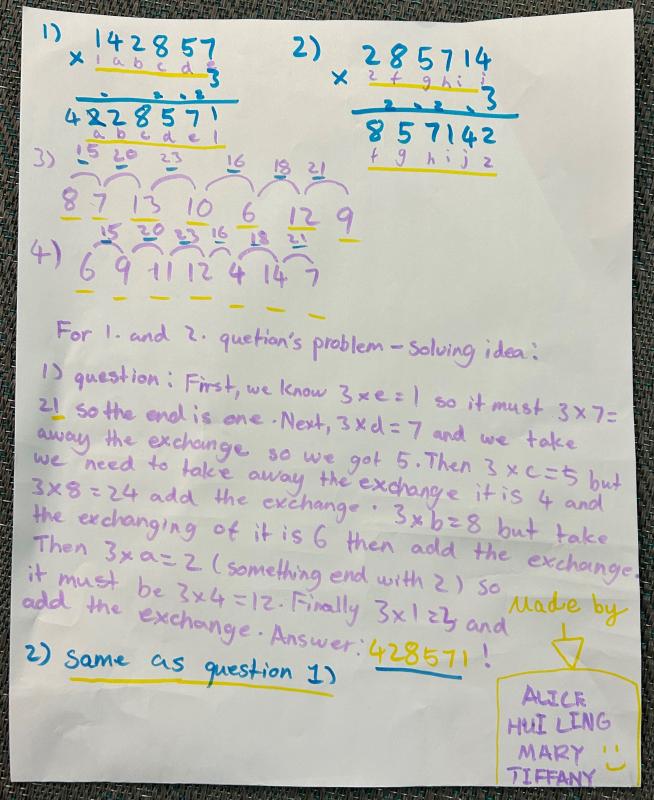 1)
142857
x 1 a b c d e 3
428571
a b c d e 1
2)
285714
x 2 f g h i j 3
857142
f g h i j 2
3)
15 20 23 16 18 21
8 7 13 10 6 12 9
4)
15 20 23 16 18 21
6 9 11 12 4 14 7
For 1. and 2. quetian's problem-solving idea:
1) question: First, we know 3xe=1 so it must 3x7=
21 so the end is one. Next, 3xd=7 and we take
away the exchange so we got 5. Then 3xc=5 but
we need to take away the exchange it is 4 and
3x8=24 add the exchange. 3xb=8 but take
the exchanging of it is 6 then add the exchange.
Then 3xa=2 (something end with 2) so
it must be 3x4=12. Finally 3x1=3 and
add the exchange. Answer: 428571!
2) same as question 1)
Made by
ALICE
HUI LING
MARY
TIFFANY